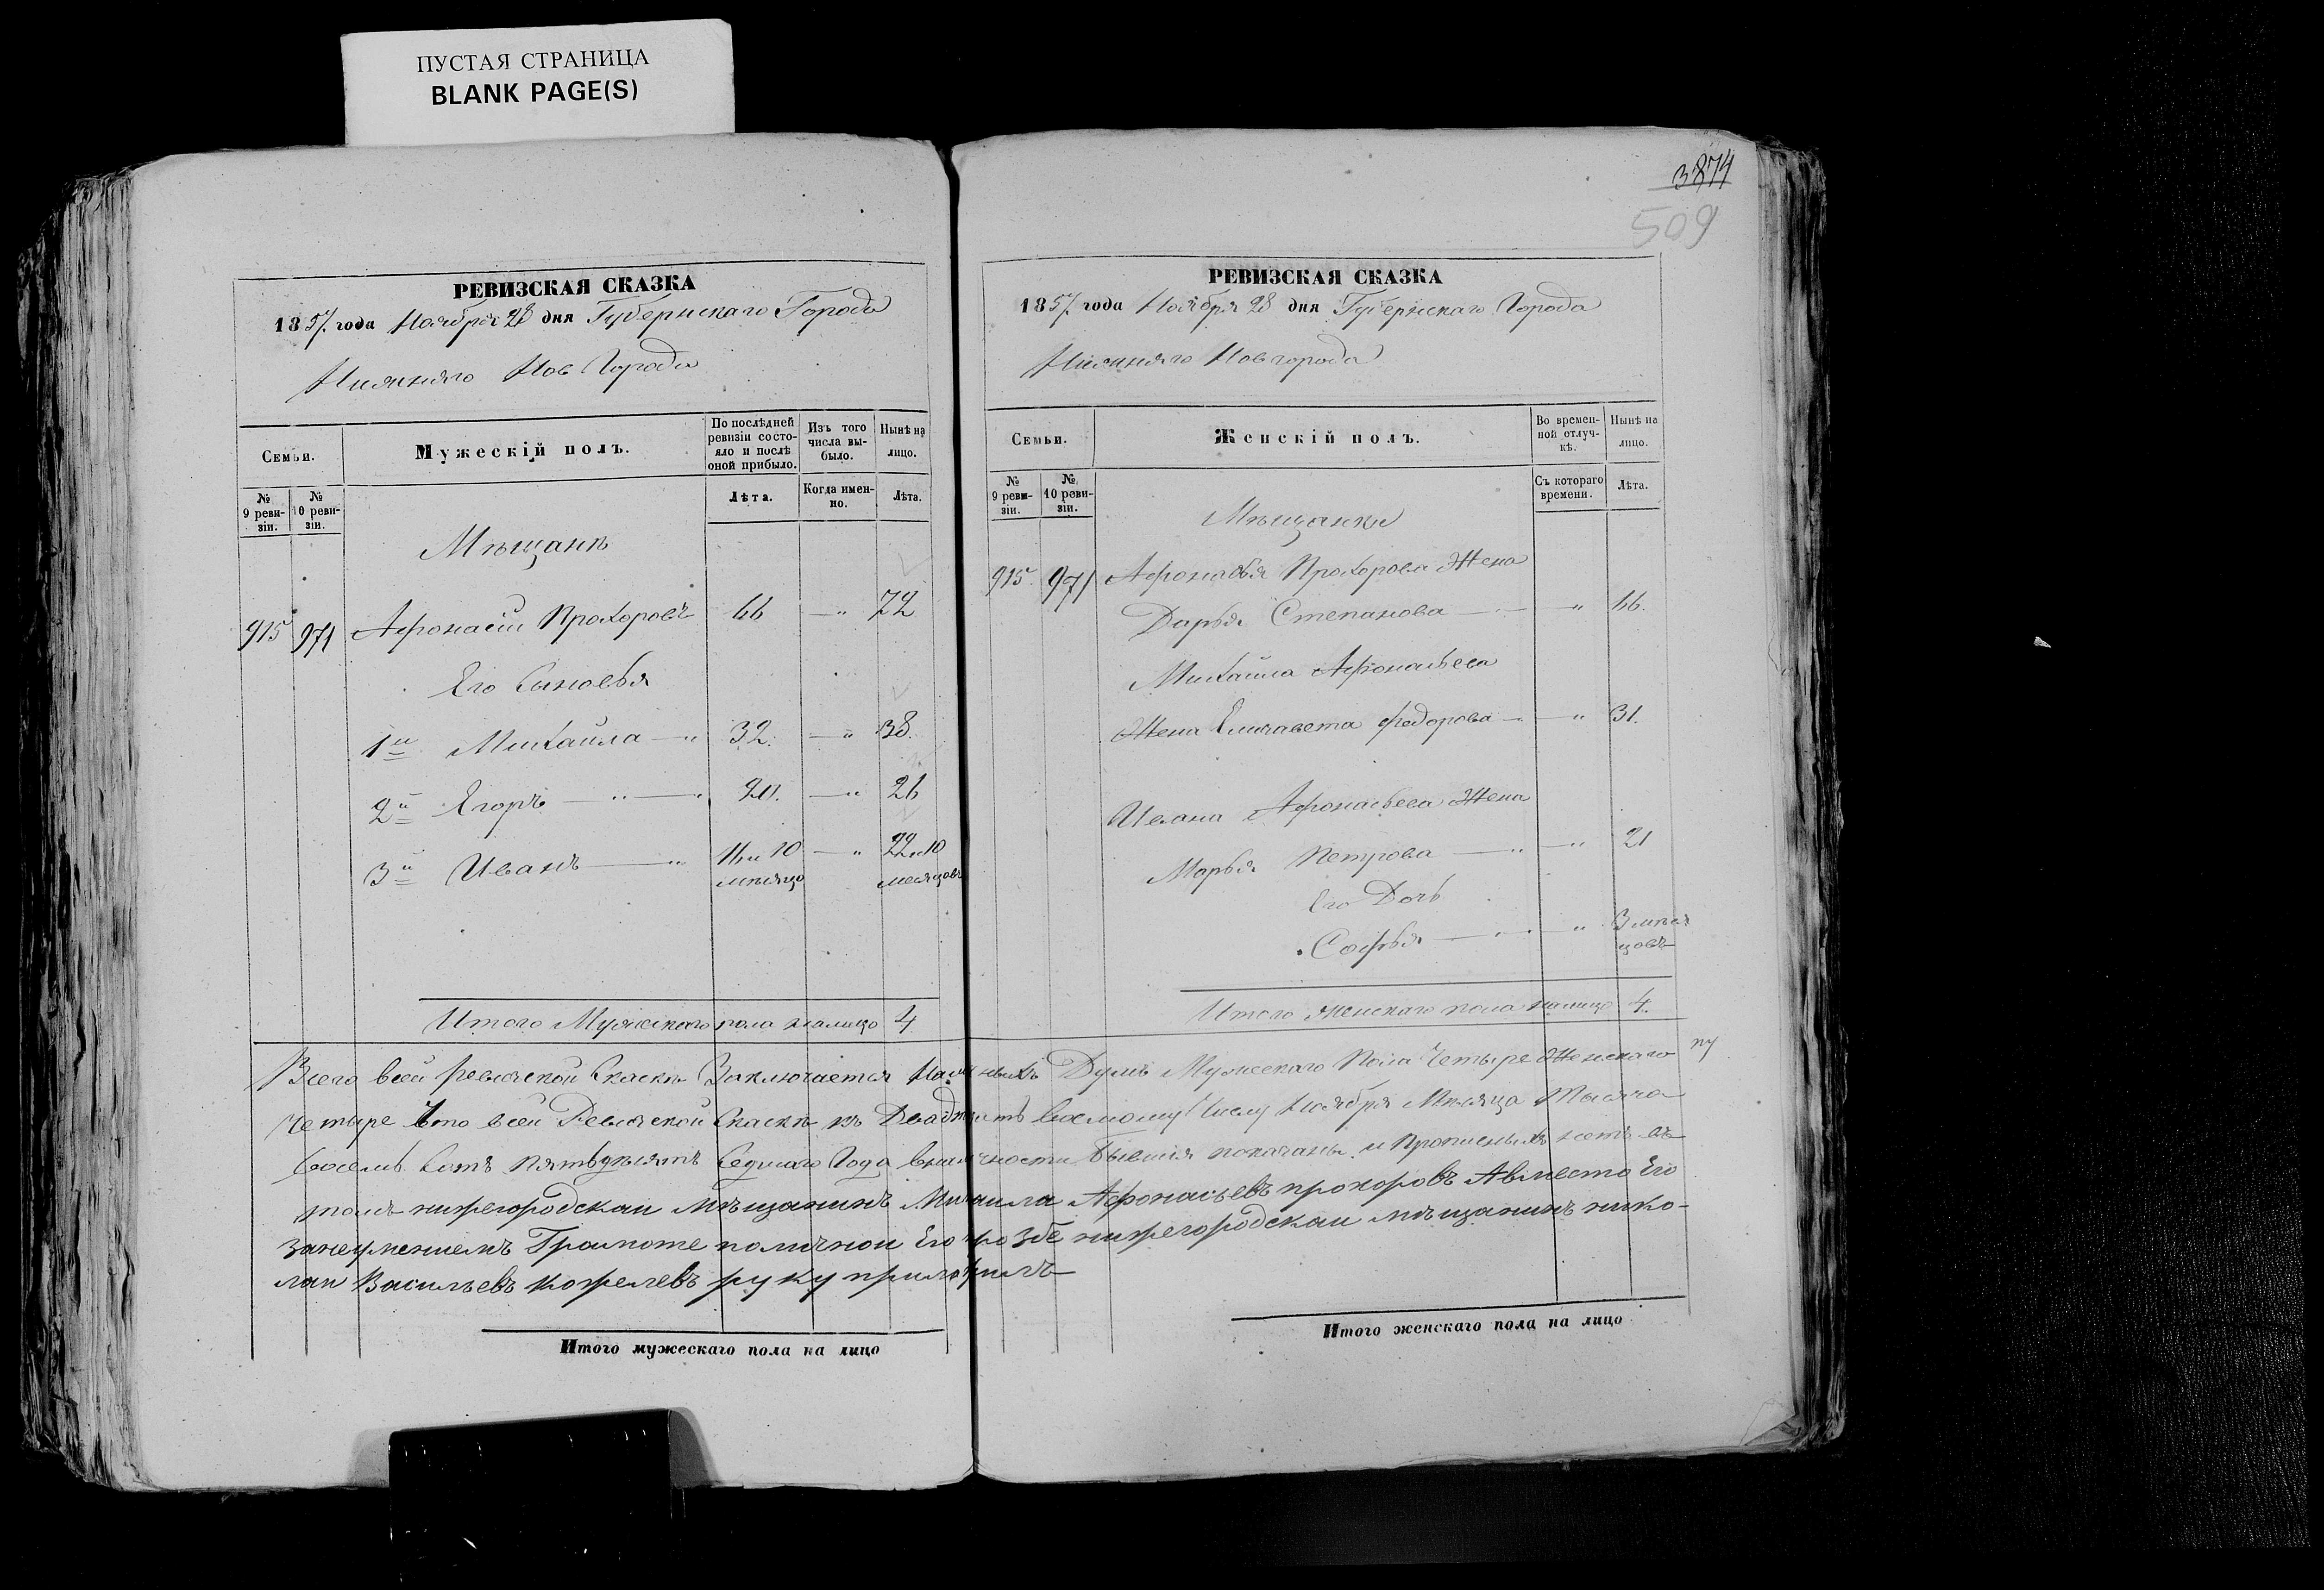 ПУСТАЯ СТРАНИЦА
BLANK PAGE(S)
3874
509
РЕВИЗСКАЯ СКАЗКА
1857 года Ноября 28 дня Губернскаго Города
Нижняго Нов Города
Семьи.
Мужескій полъ.
По послѣдней ревизіи состояло и послѣ оной прибыло.
Изъ того числа выбыло.
Нынѣ на лицо.
№ 9 ревизіи.
№ 10 ревизіи.
Лѣта.
Когда именно.
Лѣта.
Мѣщане
915 971 Афонасій Прохоровъ 66 — " 72
Его Сыновья
1й Михайла — " 32. — " 38.
2й Егоръ — " — " 20. — " 26
3й Иванъ — " 16 и 10 — " 22 и 10
мѣсяцо месяцовъ
Итого Мужескаго пола налицо 4
РЕВИЗСКАЯ СКАЗКА
1857 года Ноября 28 дня Губернскаго Города
Нижняго Новгорода
Семьи.
Женскій полъ.
Во временной отлучкѣ.
Нынѣ на лицо.
№ 9 ревизіи.
№ 10 ревизіи.
Съ котораго времени.
Лѣта.
Мѣщанки
915. 971 Афонасья Прохорова Жена
Дарья Степанова — " 66.
Михайла Афонасьева
Жена Елизавета Федорова — " 31.
Ивана Афонасьева Жена
Марья Петрова — " — " 21
Его Дочь
Софья — " 3 мѣся
цовъ
Итого женскаго пола налицо 4.
Всего всей ревизской Сказкѣ Заключается Наличныхъ Душъ Мужескаго Пола Четыре Женскаго
Четыре Что всей Ревизской Сказкѣ къ Двадцать восмому Числу Ноября Мѣсяца Тысяча
Восемь Сотъ Пятьдесятъ Седмаго Года вналичности Бывшія показаны и Прописныхъ нетъ въ
томъ нижегородскаи мѣщанинъ Михаила Афонасьевъ прохоровъ Авместо Его
Занеумениемъ Грамоте поличнои Его прозбе нижегородскаи мѣщанинъ нико-
лаи Васильевъ руку приложилъ
Итого мужескаго пола на лицо
Итого женскаго пола на лицо